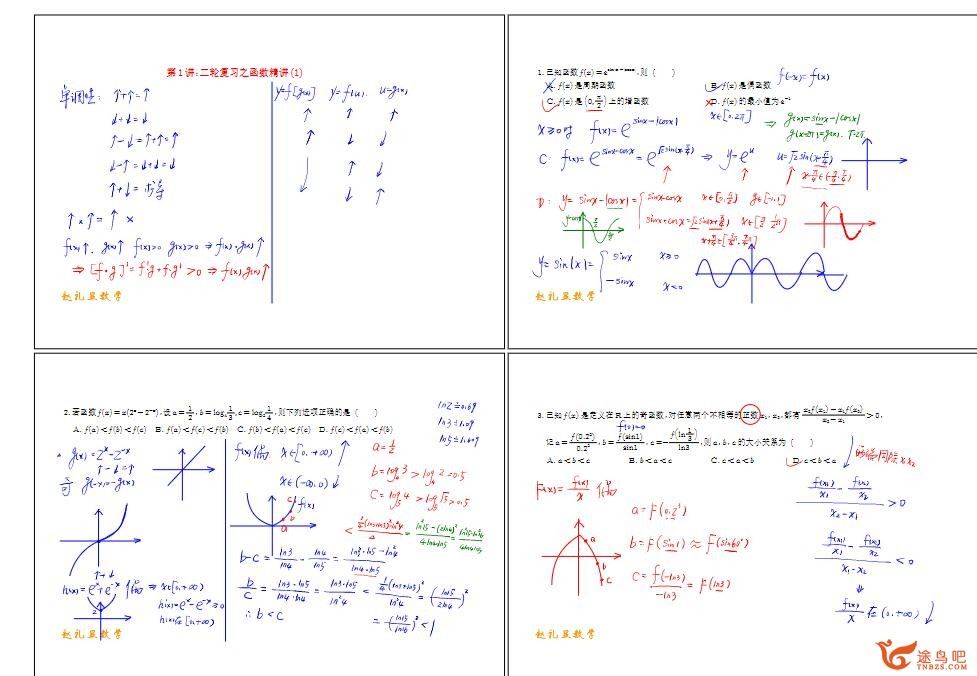 第1讲:二轮复习之函数精讲(1)
单调性: ↑+↑=↑
↓+↓=↓
↑-↓=↑+↑=↑
↓-↑=↓+↓=↓
↑+↓=
↑×↑=↑ ×
f(x)↑. g(x)↑ f(x)>0 g(x)>0 ⇒ f(x)·g(x)↑
⇒[f·g]'=f'g+f·g'>0 ⇒ f(x)·g(x)↑
y=f[g(x)] y=f(u). u=g(x)
↑ ↑ ↑
↑ ↓ ↓
↓ ↑ ↓
↓ ↑
赵礼显数学
1. 已知函数 f(x)=e^{sinx-|cosx|},则 ( )
f(-x)=f(x)
A. f(x)是周期函数 B. f(x)是偶函数
C. f(x)是(0,π/2)上的增函数 D. f(x)的最小值为e^{-1}
x∈[0,2π] ⇒ g(x)=sinx-|cosx|
g(x+2π)=g(x). T=2π
x≥0时 f(x)=e^{sinx-|cosx|}
C: f(x)=e^{sinx-cosx}=e^{√2sin(x-π/4)} ⇒ y=e^u u=√2sin(x-π/4)
x-π/4∈(-π/4,π/4)
D: y=sinx-|cosx|= sinx-cosx x∈[0,π/2] y∈[-1,1]
sinx+cosx=√2sin(x+π/4)
y=sin|x|= sinx x≥0
-sinx x<0
赵礼显数学
2. 若函数 f(x)=x(2^x-2^{-x}),设 a=1/2, b=log₄3,
则下列选项正确的是 ( )
A. f(a)<f(b)<f(c) B. f(a)<f(c)<f(b) C. f(b)<f(a)<f(c) D. f(c)<f(a)<f(b)
ln2≐0.69
ln3≐1.09
ln5≐1.609
g(x)=2^x-2^{-x}
↑-↓=↑
g(-x)=-g(x)
↑+↓
h(x)=e^x+e^{-x} 偶 ⇒ x∈[0,+∞)
h'(x)=e^x-e^{-x}≥0
h(x)在[0,+∞)
f(x)偶. x∈[0,+∞)↑
x∈(-∞,0)↓
f(x)
a=1/2
b=log₄3>log₄2=0.5
C=log₅4>log₅√5>0.5
b-c=ln3/ln4-ln4/ln5=(ln3·ln5-ln²4)/(ln4·ln5)
b/c=(ln3·ln5)/(ln4·ln4)=(ln3·ln5)/ln²4<(1/4(ln3+ln5)²)/ln²4=(ln15/2ln4)²
∴b<c
=(ln15/ln16)²<1
赵礼显数学
3. 已知 f(x)是定义在R上的奇函数,对任意两个不相等的正数x₁,x₂,都有 (x₂f(x₁)-x₁f(x₂))/(x₂-x₁)>0,
f(0)=0
记 a=f(0.2³)/0.2³, b=f(sin1)/sin1, c=-f(ln1/3)/ln3,则a,b,c的大小关系为 ( )
A. a<b<c B. b<a<c C. c<a<b D. c<b<a
F(x)=f(x)/x 偶
a=F(0.2³)
b=F(sin1)≈F(sin60°)
C=f(-ln3)/-ln3=F(ln3)
(f(x₁)/x₁-f(x₂)/x₂)/(x₂-x₁)>0
(f(x₁)/x₁-f(x₂)/x₂)/(x₁-x₂)<0
⇓
f(x)/x 在(0,+∞)↓
赵礼显数学
途鸟吧
TNBZS.COM